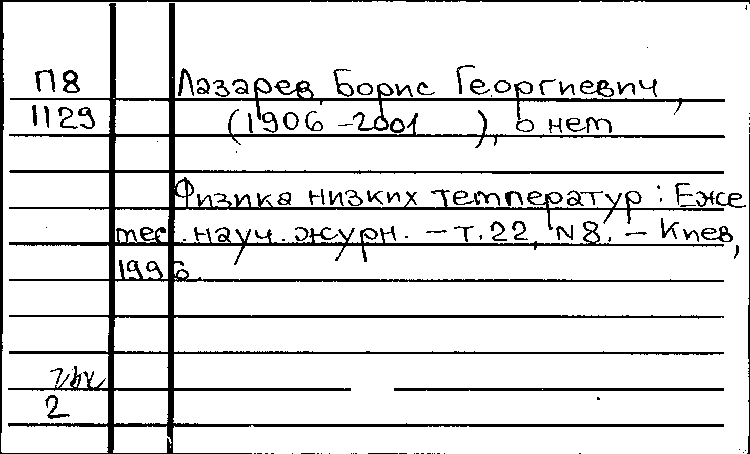 П8
1129
Лазарев, Борис Георгиевич,
(1906-2001 ), о нем
Физика низких температур: Еже
мес. науч. журн. - Т.22, N8. - Киев,
1996.
2